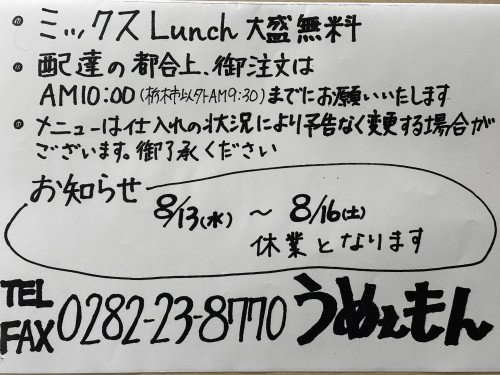 • ミックスLunch 大盛無料
• 配達の都合上、御注文は
AM10:00(栃木市以外AM9:30)までにお願いいたします
• メニューは仕入れの状況により予告なく変更する場合が
ございます。御了承ください
お知らせ
8/13(水) 〜 8/16(土)
休業となります
TEL
FAX 0282-23-8770 うめぇもん